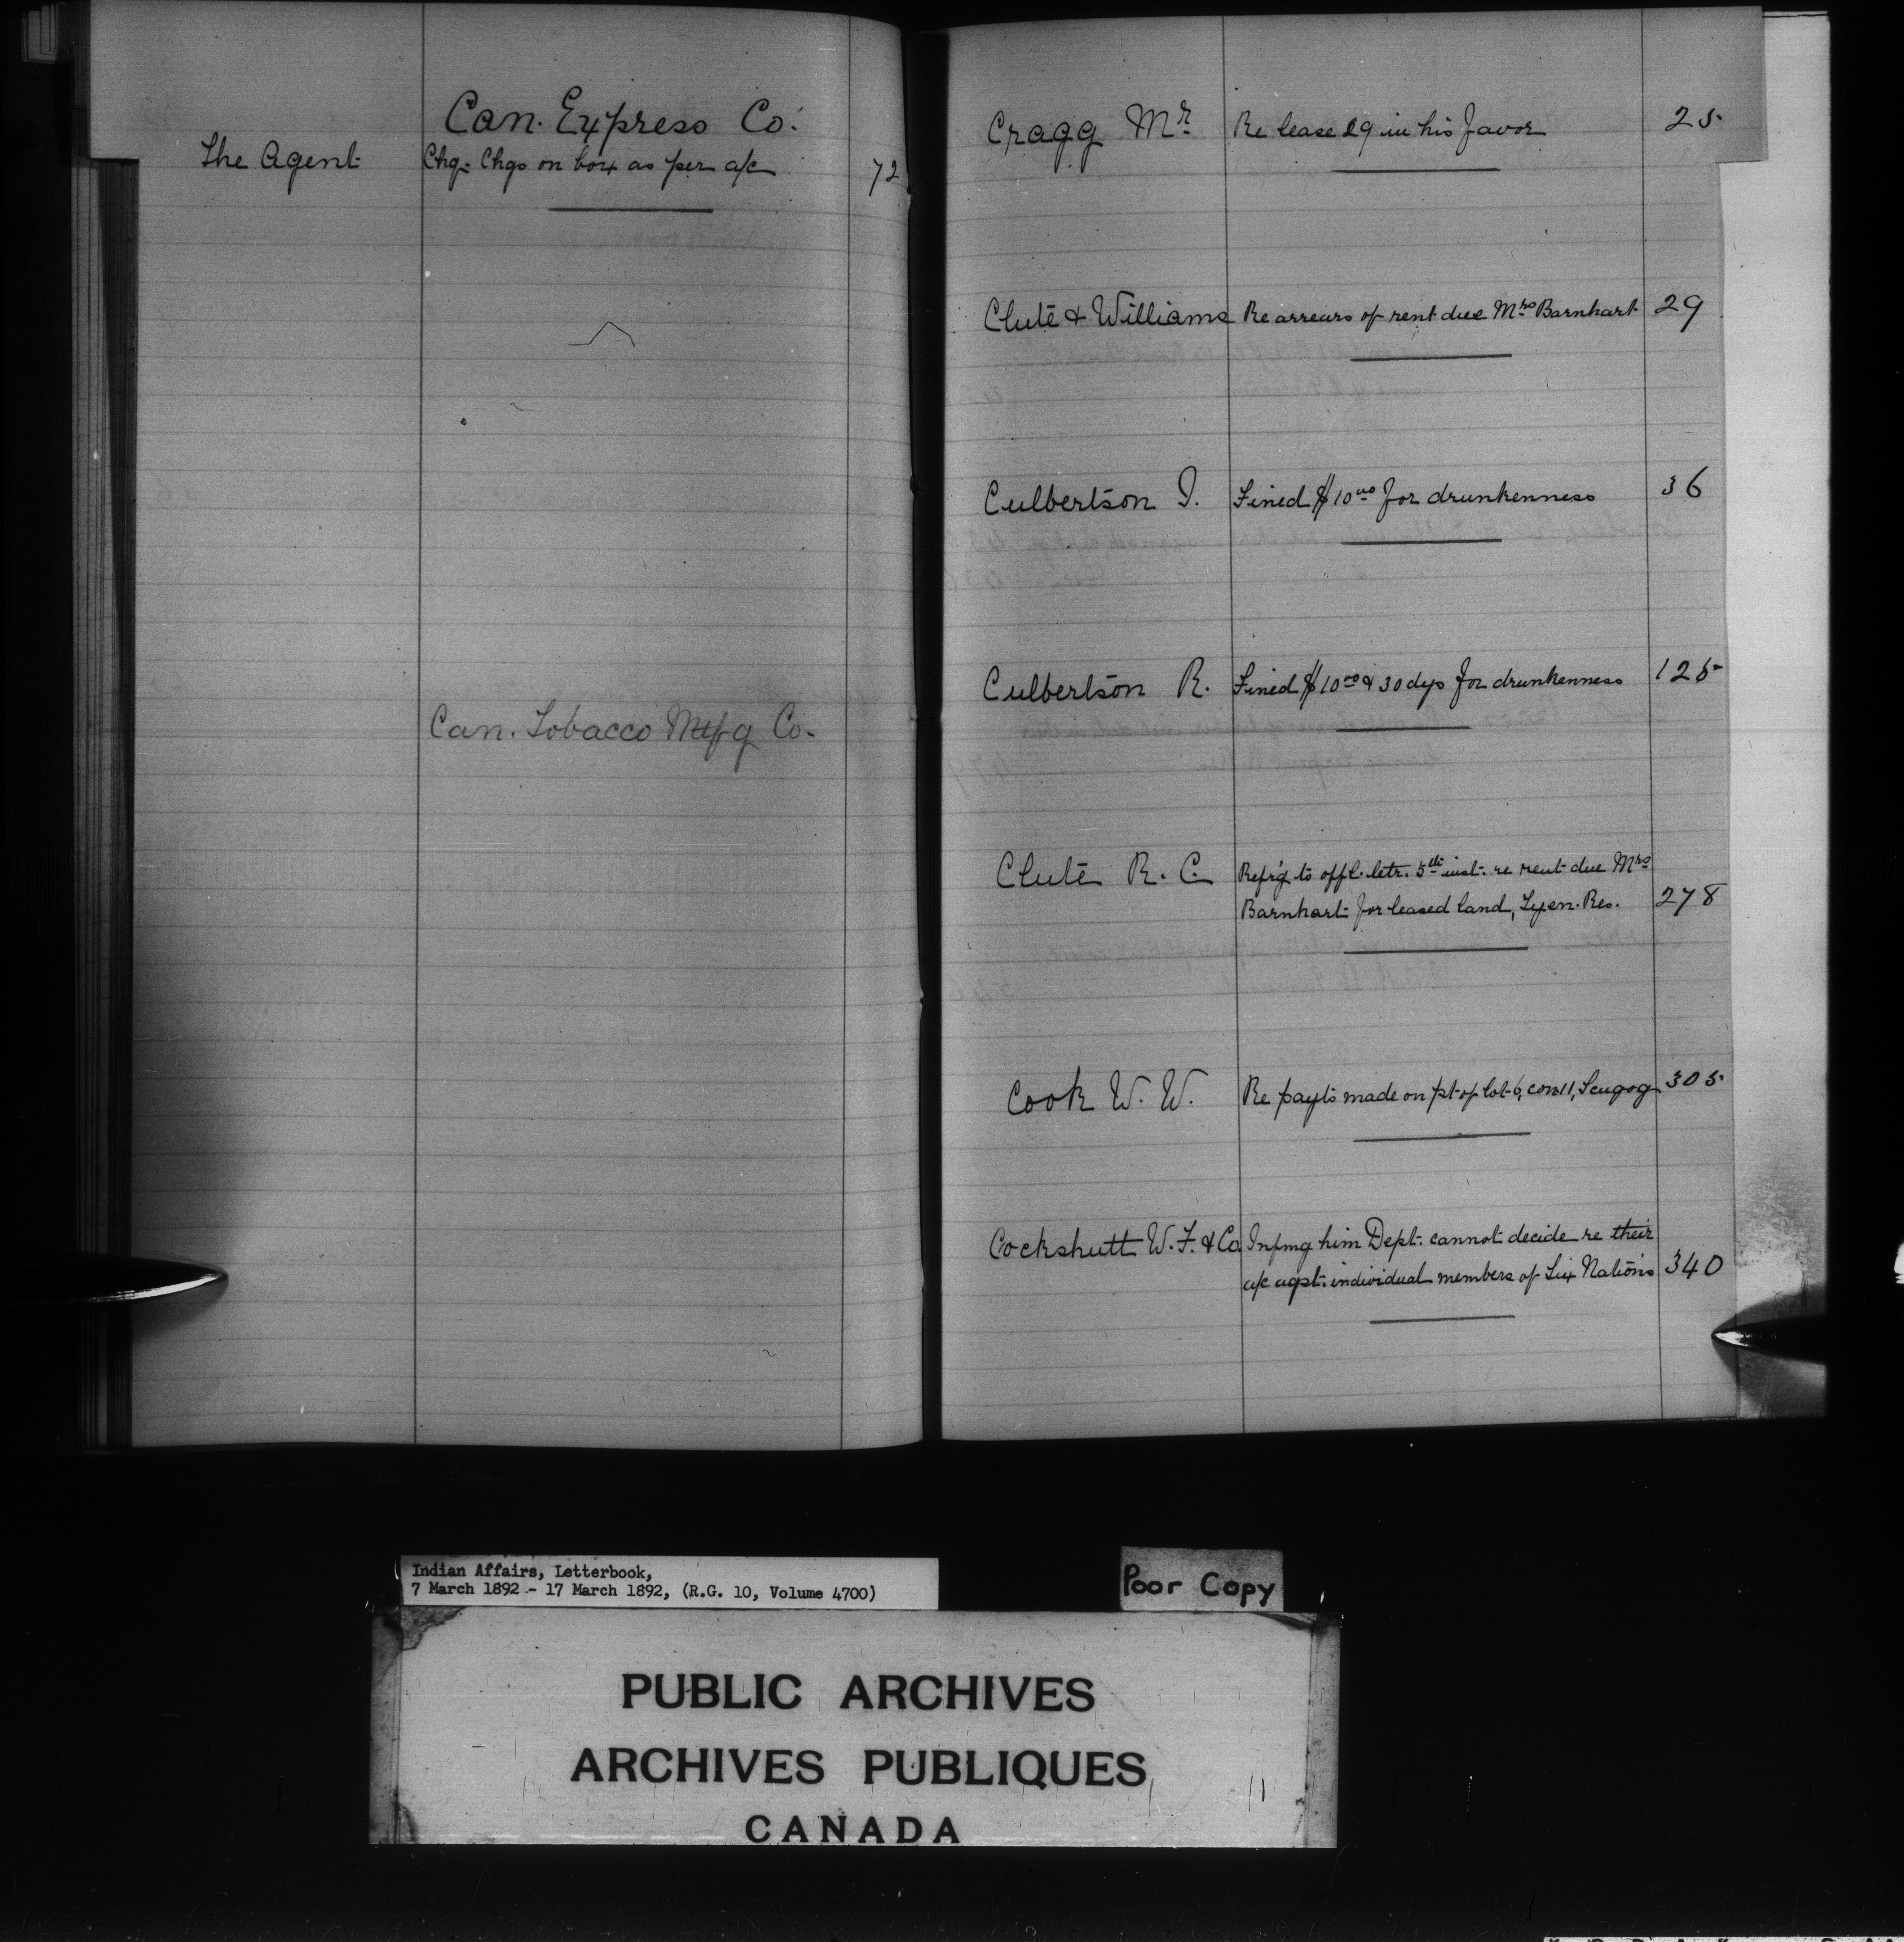 Can. Express Co.
The Agent Chq. Chgs on box as per a/c 72
Can. Tobacco Mfg Co.
Cragg Mr Re lease 29 in his favor 25
Clute & Williams Re arrears of rent due Mrs Barnhart 29
Culbertson I. Fined $10 00 for drunkenness 36
Culbertson R. Fined $10 00 & 30 dys for drunkenness 125
Clute R. C. Refrg to offl. letr. 5th inst. re rent due Mrs
Barnhart for leased land, Tyen. Res. 278
Cook W. W. Re payts made on pt of lot 6, con 11, Scugog 305
Cockshutt W. F. & Co. Infmg him Dept. cannot decide re their
a/c agst. individual members of Six Nations 340
Indian Affairs, Letterbook,
7 March 1892 - 17 March 1892, (R.G. 10, Volume 4700)
Poor Copy
PUBLIC ARCHIVES
ARCHIVES PUBLIQUES
CANADA